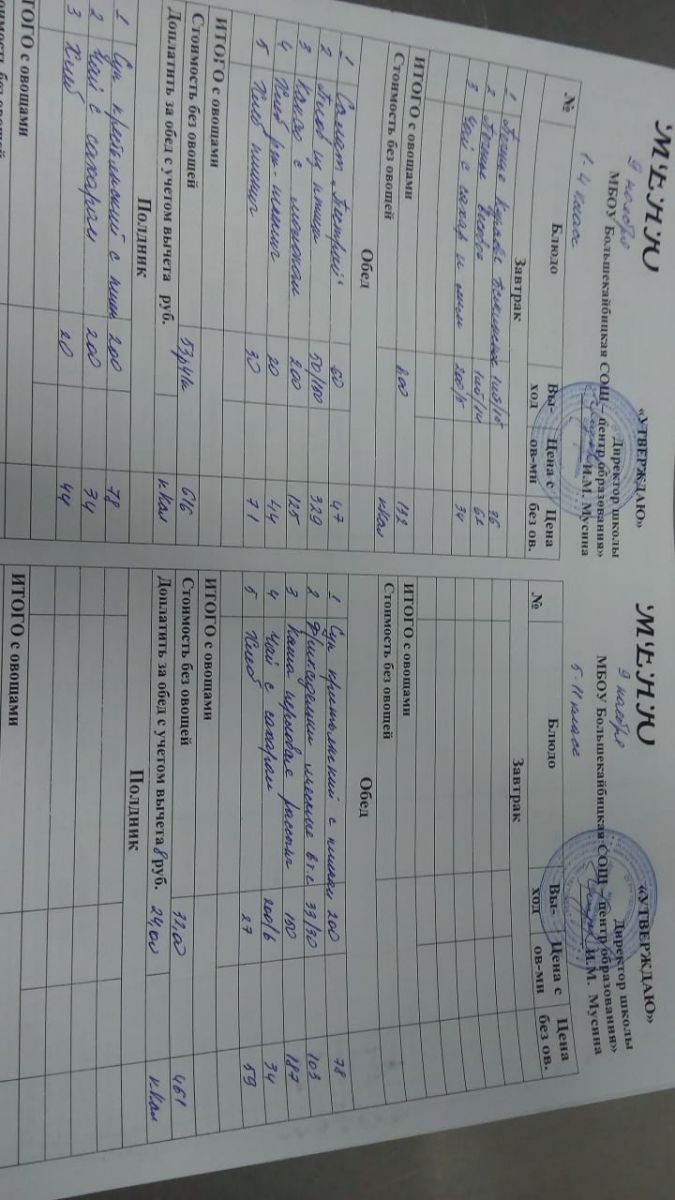 МЕНЮ
«УТВЕРЖДАЮ»
Директор школы
9 ноября
МБОУ Большекайбицкая СОШ – центр образования»
И.М. Мусина
1-4 класс
№ Блюдо Вы-ход Цена с ов-ми Цена без ов.
Завтрак
1
2
3 Чай с сахар и мол 200/5 34
ИТОГО с овощами 200 132
Стоимость без овощей ккал
Обед
1 Салат "Пестрый" 60 47
2 Плов из птицы 50/150 329
3 Какао с молоком 200 125
4 Хлеб рж-пшенич 20 44
5 Хлеб пшенич 30 71
ИТОГО с овощами
Стоимость без овощей 616
Доплатить за обед с учетом вычета руб. ккал
Полдник
1 Суп крестьянский с пшен 200 78
2 Чай с сахаром 200 34
3 Хлеб 20 44
ИТОГО с овощами
МЕНЮ
«УТВЕРЖДАЮ»
Директор школы
9 ноября
МБОУ Большекайбицкая СОШ – центр образования»
И.М. Мусина
5-11 класс
№ Блюдо Вы-ход Цена с ов-ми Цена без ов.
Завтрак
ИТОГО с овощами
Стоимость без овощей
Обед
1 Суп крестьянский с пшеном 200 78
2 Фрикадельки мясные в т.с 103
3 Каша перловая рассып 150 187
4 Чай с сахаром 200/6 34
5 Хлеб 27 59
ИТОГО с овощами
Стоимость без овощей 32,00 461
Доплатить за обед с учетом вычета 8 руб. 24,00 ккал
Полдник
ИТОГО с овощами